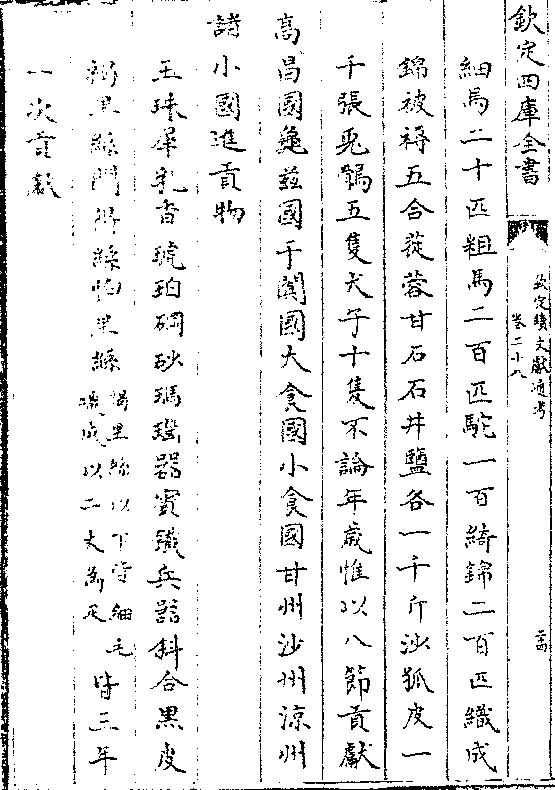 欽定四庫全書
欽定續文獻通考
卷二十八
細馬二十匹粗馬二百匹駝一百綺錦二百匹織成
錦被褥五合蓯蓉甘石石井鹽各一千斤沙狐皮一
千張兎鶻五隻犬子十隻不論年歲惟以八節貢獻
高昌國龜兹國于闐國大食國小食國甘州沙州涼州
諸小國進貢物
玉珠犀乳香琥珀硇砂瑪瑙器賓鐵兵器斜合黑皮
褐黑絲門得絲怕里絲
褐里絲以下皆細毛
織成以二丈為疋
皆三年
一次貢獻